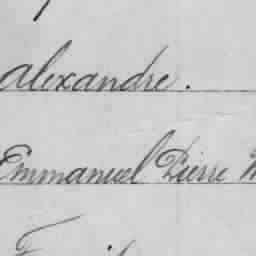 alexandre.
Emmanuel Pierre